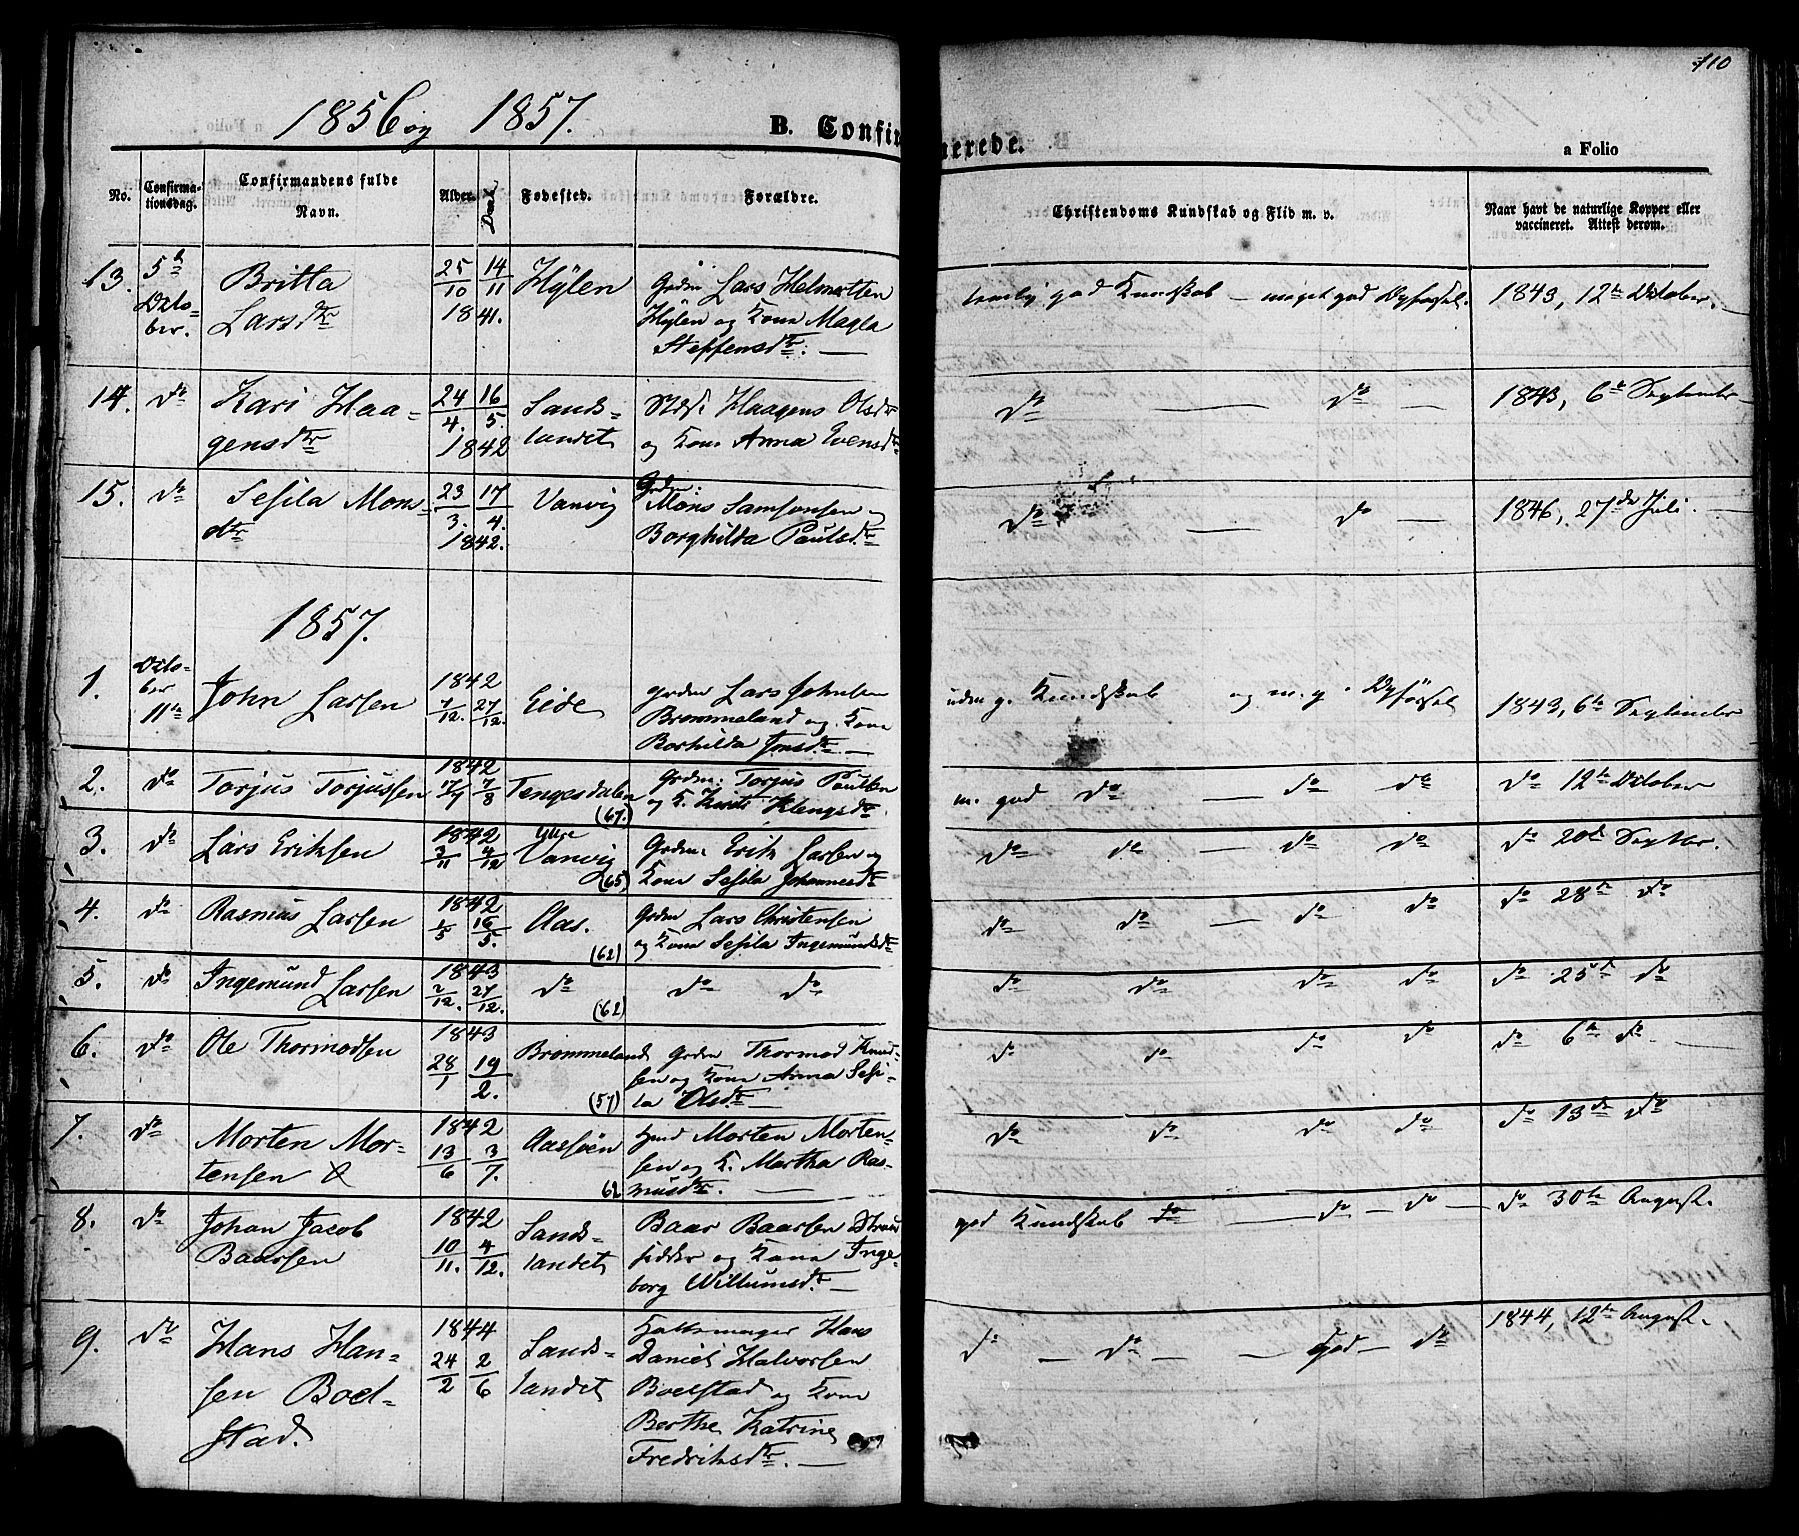 110
1856 og 1857.
B. Confirmerede.
a Folio
No.
Confirmationsdag.
Confirmandens fulde Navn.
Alder.
Døbt
Fødested.
Forældre.
Christendoms Kundskab og Flid m. v.
Naar havt de naturlige Kopper eller vaccineret. Attest derom.
13. 5te October. Britta Larsdtr 25/10 14/11 1841. Hylen Grdm Lars Helmertten Hylen og Kone Magla Steffensdtr. — temlig god Kundskab — meget god Opførsel. 1843, 12te October. —
14. do Kari Haagensdtr 24/4. 16/5. 1842 Sandslandet Haagens Olsdr og Kone Anna Evensdtr do — do — 1843, 6te September —
15. do Sesila Monsdtr 23/3. 17/4. 1842. Vanvig Grdm: Mons Samsonsen og Borghilda Paulsdtr do — do — 1846, 27de Juli. —
1857.
1. October 11te John Larsen 1842 7/12. 27/12. Eide Grdm Lars Johnsen Brommeland og Kone Borhilda Jonsdtr — g. Kundskab og m. g. Opførsel 1843, 6te September
2. do Torjus Torjussen 1842 7/8 Tengesdalen (67.) Grdm: Torjus Paulsen og K. Klengsdtr. m. god do — do do do 12te October
3. do Lars Eriksen 1842 3/11 4/12 Ytre Vanvig (65) Grdm: Erik Larsen og Kone Sesila Johannesdtr do do — do do do 20de Septbr.
4. do Rasmus Larsen 1842 1/5 16/5. Aas. (62) Grdm Lars Christensen og Kone Sesila Ingemundsdtr do do — do do do 28de do
5. do Ingemund Larsen 1843 2/12. 27/12. do (62) do do do do do do do 25de do
6. do Ole Thormodsen 1843 28/1 19/2. Brommeland (57) Grdm Thormod Knudsen og Kone Anna Sesila Olsdtr — do do do do do 6te do —
7. do Morten Mortensen 1842 13/6 3/7. Aasøen 62 Hmd Morten Mortensen og K. Martha Rasmusdtr. — do do do do do 13de do
8. do Johan Jacob Baarsen 1842 10/11. 4/12. Sandslandet Baar Baarsen Strandsidder og Kone Ingeborg Willumsdtr. — god Kundskab do — do — do — do 30te August.
9. do Hans Hansen Boelstad. 1844 24/2 2/6 Sandslandet Hans Daniel Halvorsen Boelstad og Kone Berthe Katrine Fredriksdtr. — do — do — god — do 1844, 12te August.